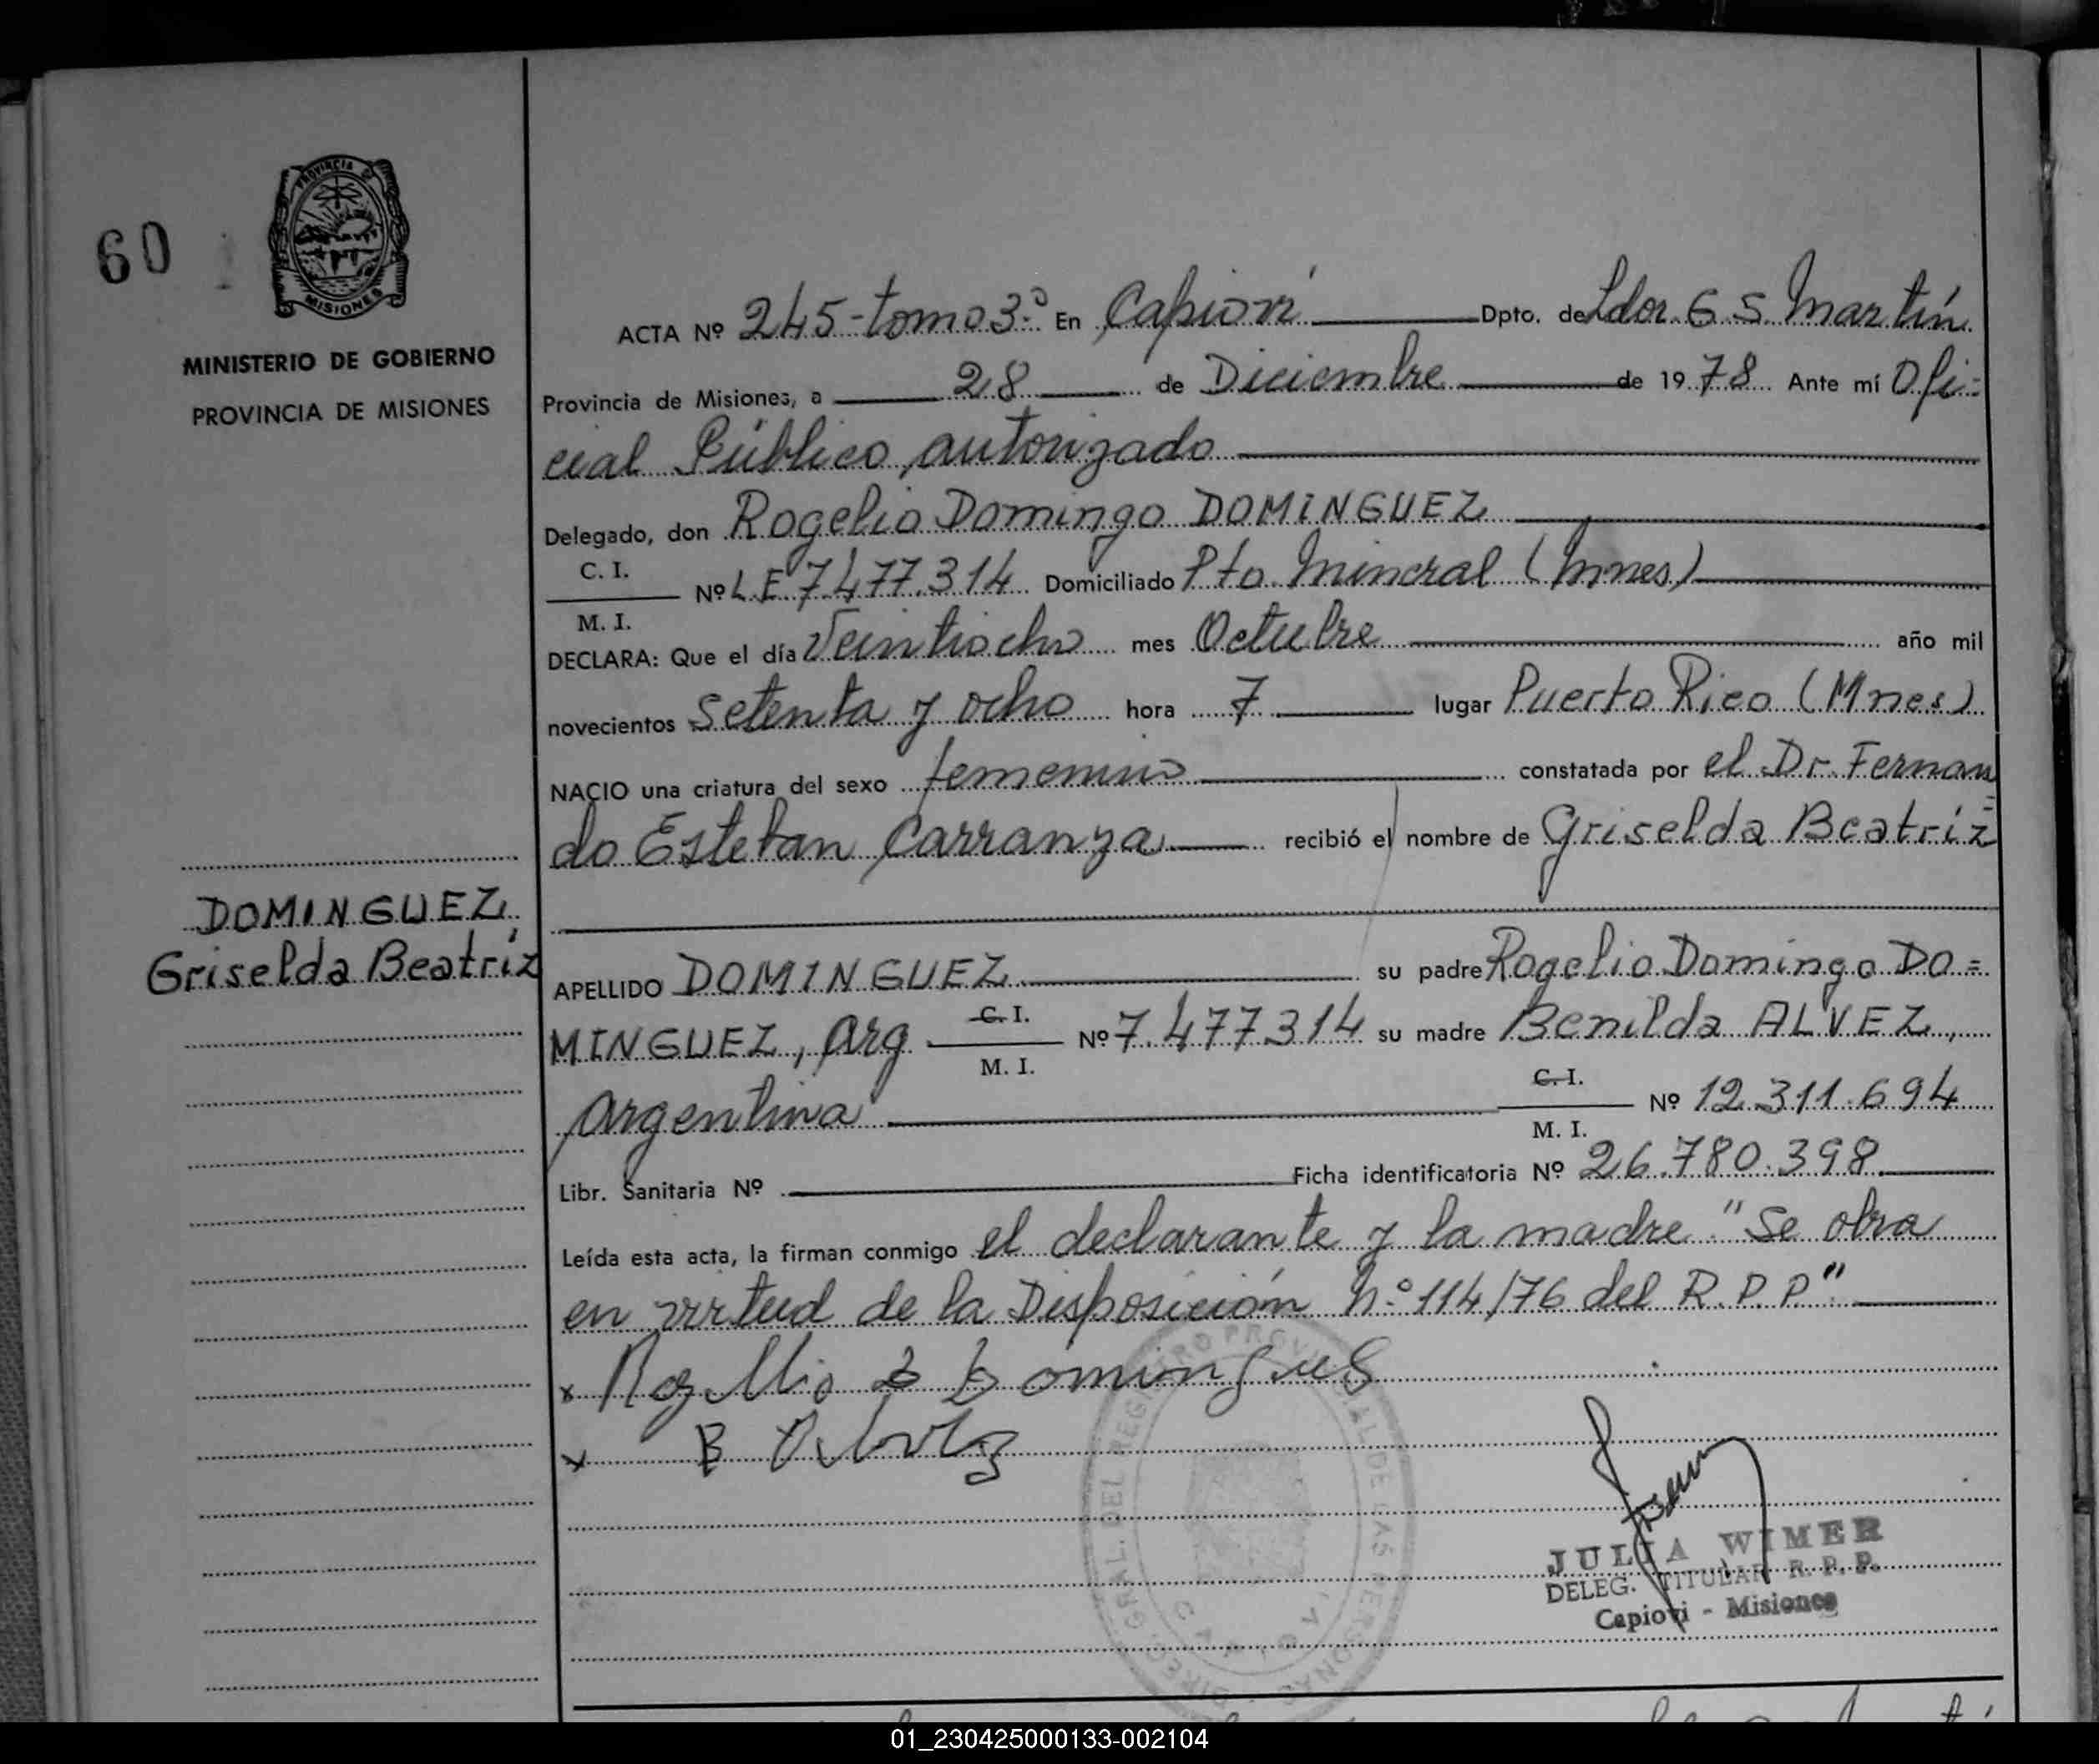 60
PROVINCIA DE
MISIONES
MINISTERIO DE GOBIERNO
PROVINCIA DE MISIONES
DOMINGUEZ,
Griselda Beatríz
ACTA Nº 245-tomo 3º En Capioví Dpto. de Ldor. G S. Martín
Provincia de Misiones, a 28 de Diciembre de 1978 Ante mí Ofi=
cial Público autorizado
Delegado, don Rogelio Domingo DOMINGUEZ
C. I.
M. I.
Nº L E 7.477.314 Domiciliado Pto. Mineral (Mnes)
DECLARA: Que el día Veintiocho mes Octubre año mil
novecientos setenta y ocho hora 7 lugar Puerto Rico (Mnes)
NACIO una criatura del sexo femenino constatada por el Dr. Fernan=
do Esteban Carranza recibió el nombre de Griselda Beatríz
APELLIDO DOMINGUEZ su padre Rogelio Domingo DO=
MINGUEZ, Arg C. I. M. I. Nº 7.477314 su madre Benilda ALVEZ,
Argentina C. I. M. I. Nº 12.311.694
Libr. Sanitaria Nº Ficha identificatoria Nº 26.780.398
Leída esta acta, la firman conmigo el declarante y la madre "Se obra
en virtud de la Disposición Nº 114/76 del R.P.P."
x
x B
JULIA WIMER
DELEG. TITULAR R. P. P.
Capiovi - Misiones
01_230425000133-002104